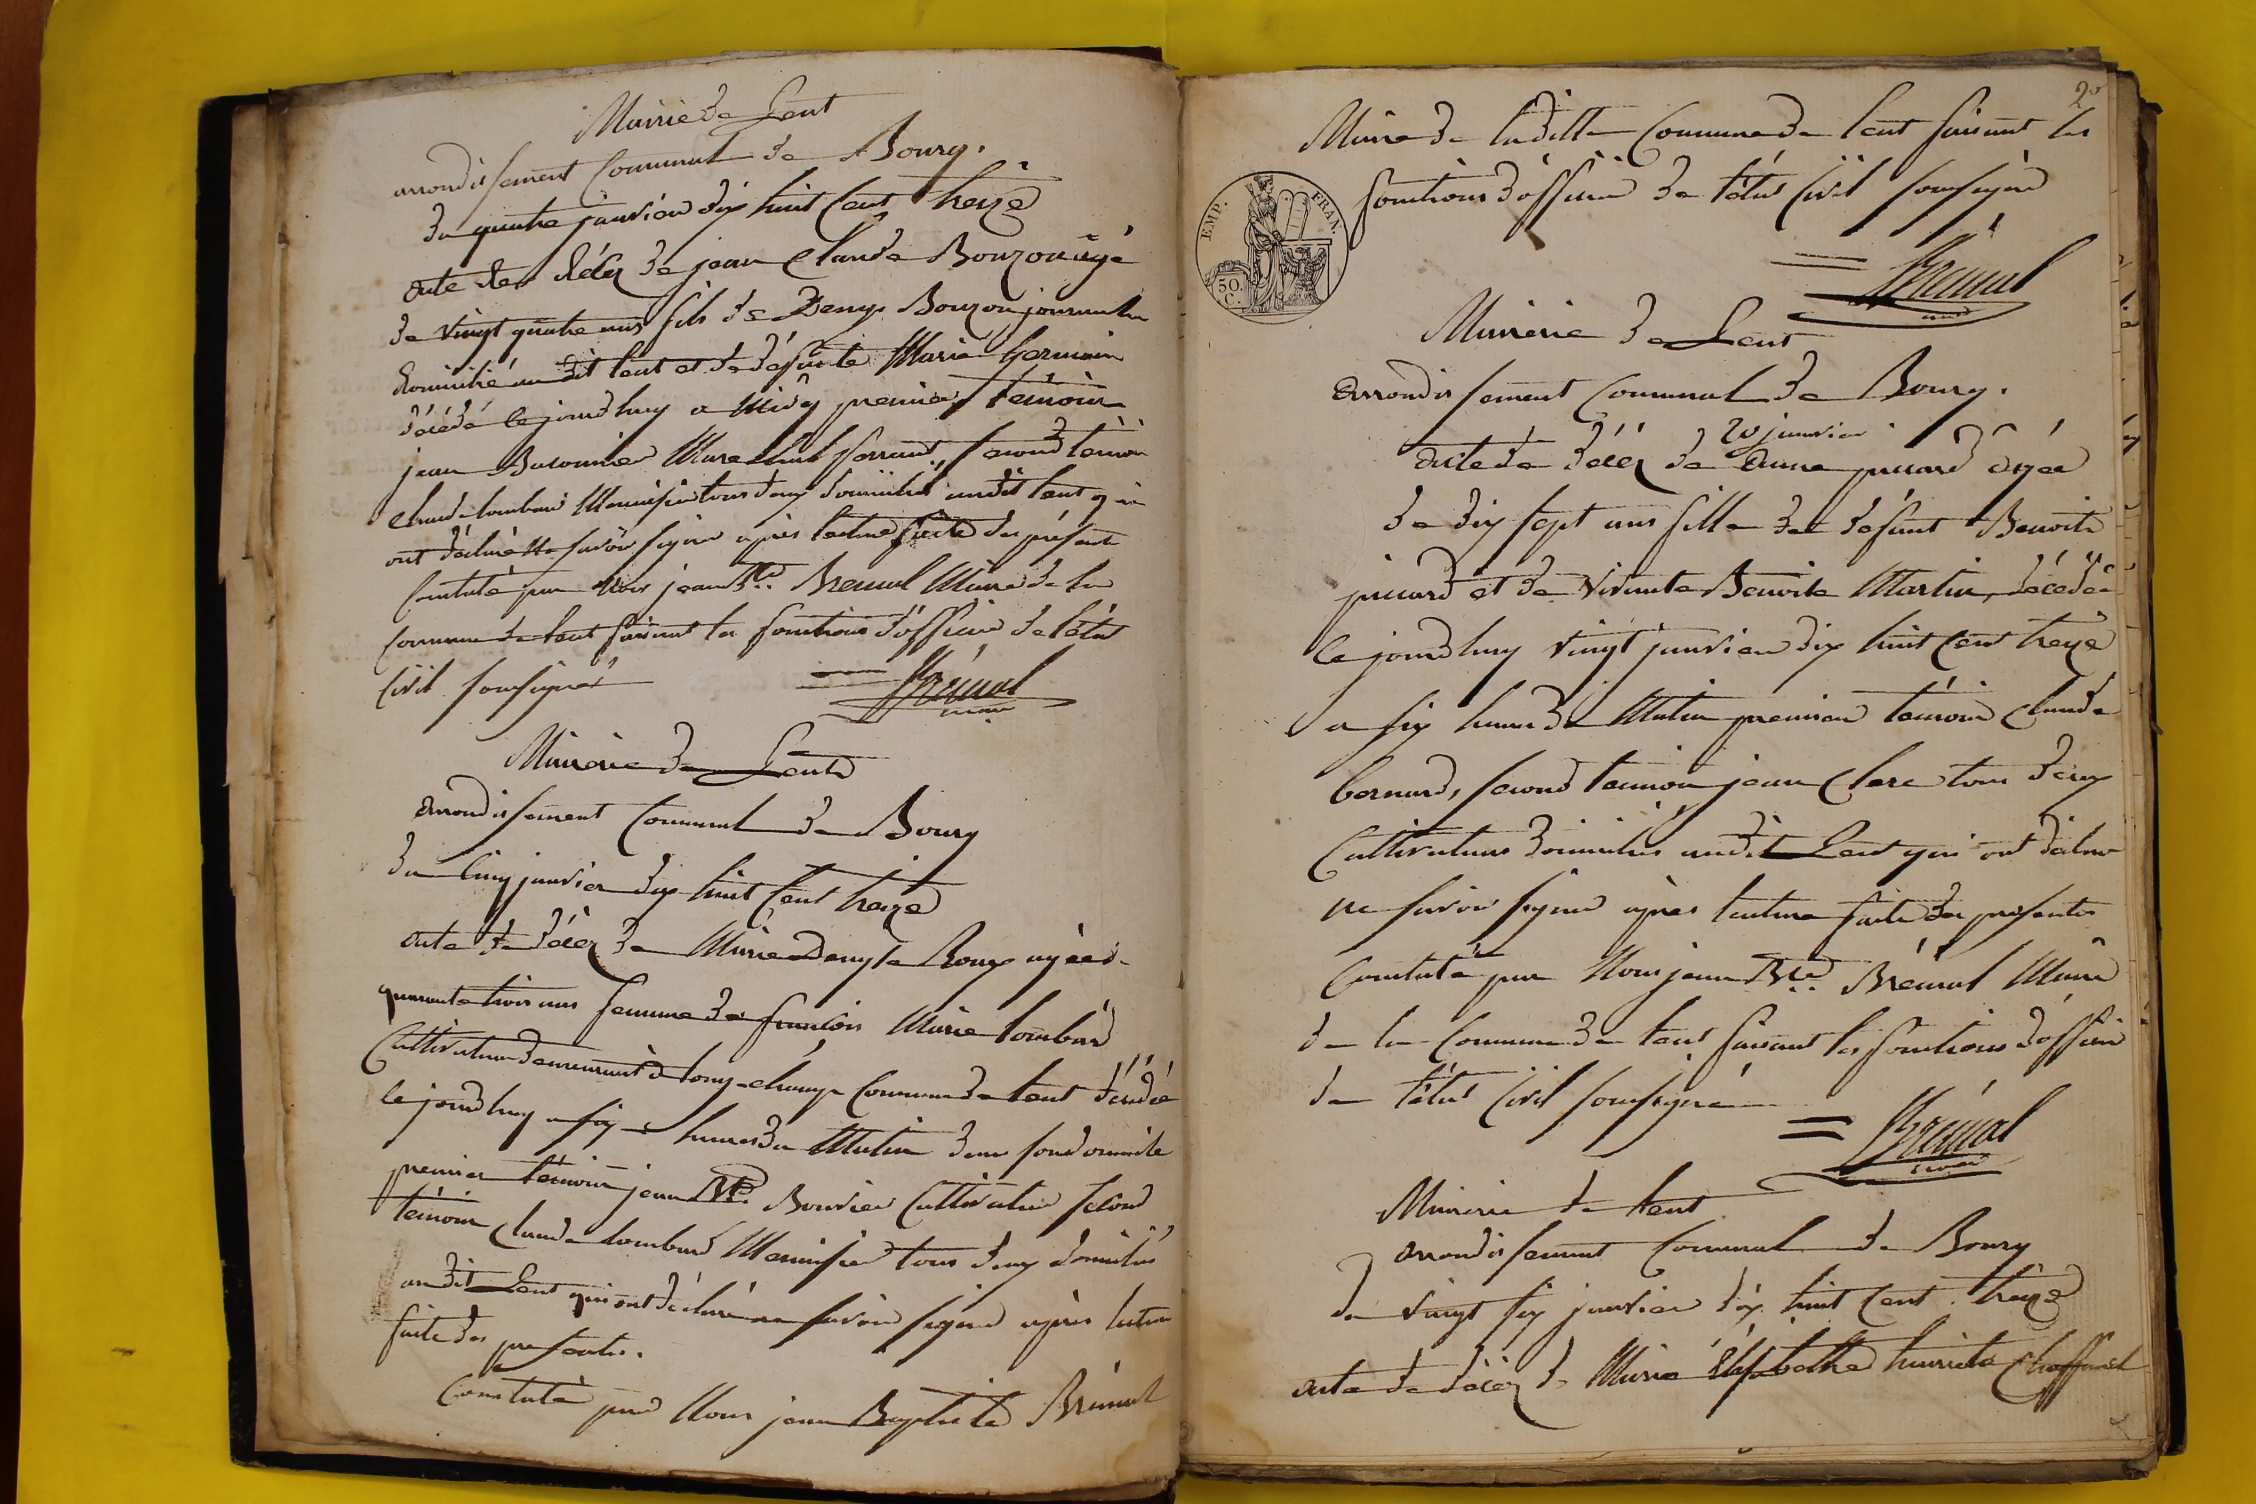 Mairie de Lent
arrondissement Communal de Bourg.
du quatre janvier dix huit Cent treize
acte de décez de jean Claude Bouzon agé
de vingt quatre ans fils de Denys Bouzon journalier
domicilié au dit Lent et de défunte Marie Germain
décédé cejourdhuy a Midy premier témoin
jean Marechal ferrand, second témoin
Claude Lombard Menuisier tous deux domiciliés audit Lent qui
ont déclaré ne savoir signer après lecture faite des présentes
Constaté par Nous jean Bte. Brémal Maire de la
Commune de Lent faisant les fonctions d'officier de l'état
Civil soussigné
Brémal
maire
Mairerie de Lent
arrondissement Communal de Bourg
du Cinq janvier dix huit Cent treize
acte de décez de Marie Denyse Roux agée de
quarante trois ans femme de françois Marie Lombard
Cultivateur demeurant à Longchamp Commune de Lent décédée
cejourdhuy a six heures du Matin dans son domicile
premier témoin jean Bte. Bouvier Cultivateur second
témoin Claude Lombard Menuisier tous deux domiciliés
audit Lent qui ont déclaré ne savoir signer après lecture
faite des presentes.
Constaté par Nous jean Baptiste Brémal
20
Maire de laditte Commune de Lent faisant les
fonctions d'officier de l'état Civil soussigné
EMP. FRAN.
50.
C.
Brémal
maire
Mairerie de Lent
arrondissement Communal de Bourg.
20 janvier
acte de décez de Anne picard agée
de dix sept ans fille de defunt Benoit
picard et de vivante Benoite Martin, décédée
cejourdhuy vingt janvier dix huit Cent treize
a six heures du Matin premier témoin Claude
bernard, second temoin jean Clerc tous deux
Cultivateurs domiciliés audit Lent qui ont déclaré
ne savoir signer après lecture faite des presentes
Constaté par Nous jean Bte. Brémal Maire
de la Commune de Lent faisant les fonctions d'officier
de l'état Civil soussigné
Brémal
maire
Mairerie de Lent
arrondissement Communal de Bourg
du vingt six janvier dix huit Cent treize
acte de décez de Marie henriette